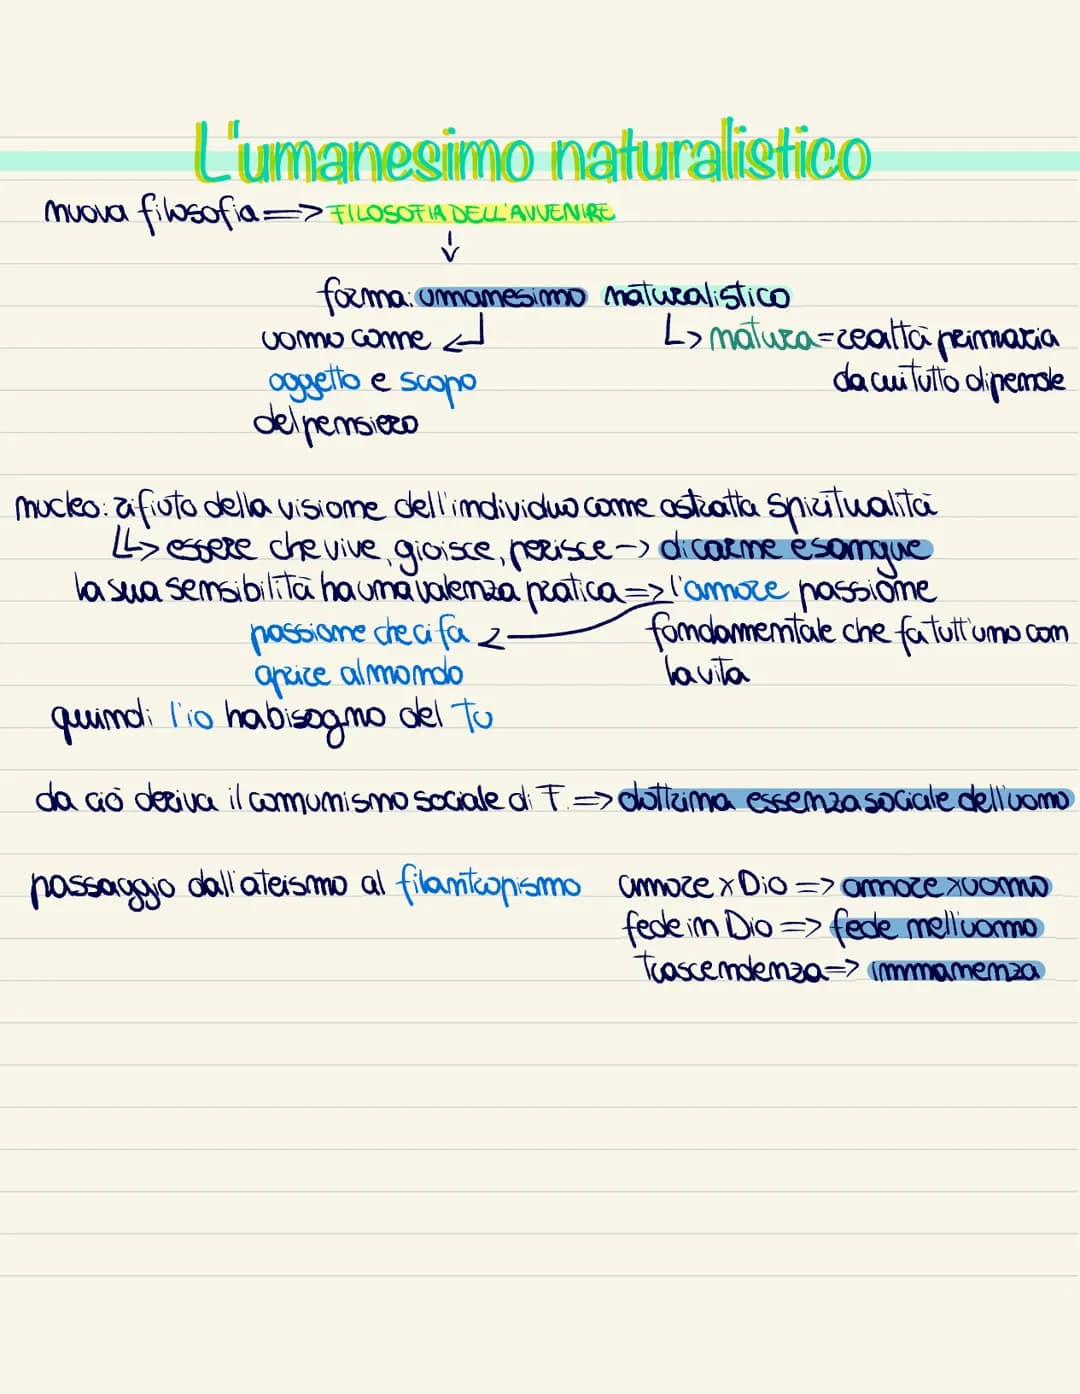 L'umanesimo naturalistico
nuova filosofia => FILOSOFIA DELL'AVVENIRE
↓
forma: umanesimo naturalistico
uomo come ↲ ↳ natura = realtà primaria
oggetto e scopo da cui tutto dipende
del pensiero
nucleo: rifiuto della visione dell'individuo come astratta spiritualità
↳> essere che vive, gioisce, perisce -> di carne e sangue
la sua sensibilità ha una valenza pratica => l'amore passione
passione che ci fa fondamentale che fa tutt'uno con
aprire al mondo la vita
quindi l'io ha bisogno del Tu
da ciò deriva il comunismo sociale di F. => dottrina essenza sociale dell'uomo
passaggio dall'ateismo al filantropismo amore x Dio => amore x uomo
fede in Dio => fede nell'uomo
Trascendenza => immanenza